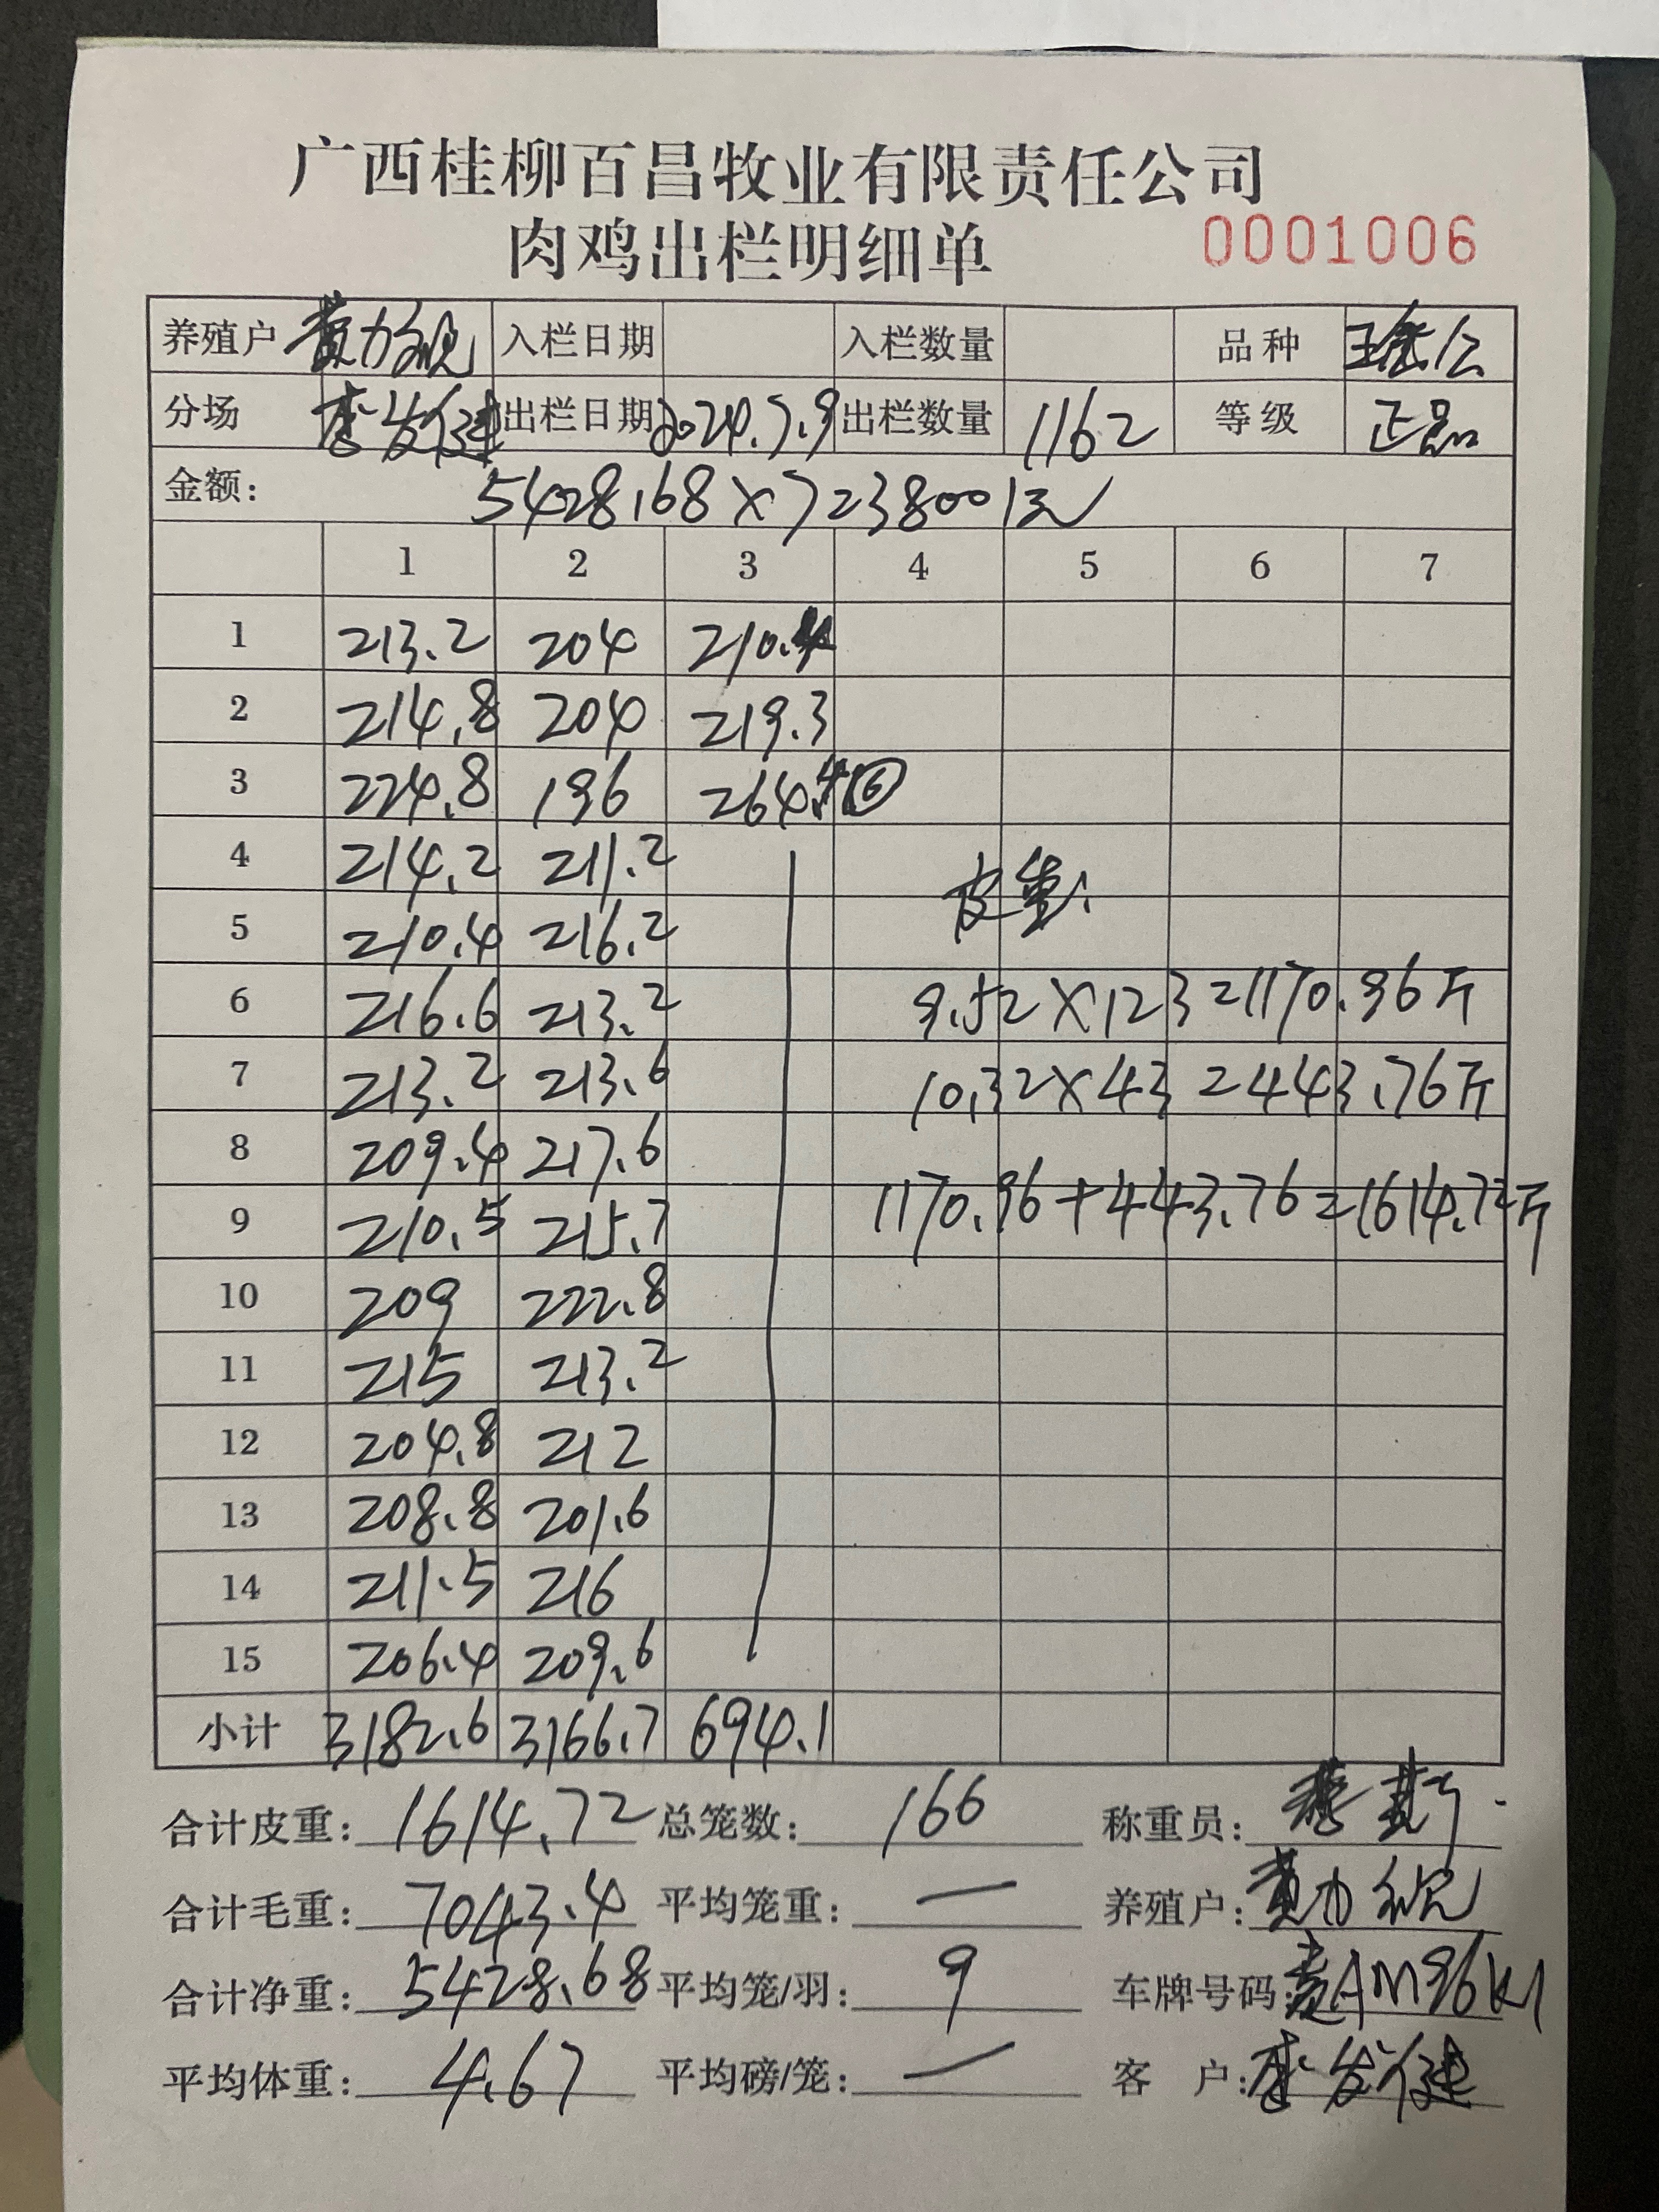 广西桂柳百昌牧业有限责任公司
肉鸡出栏明细单 0001006
养殖户 黄力 入栏日期 入栏数量 品种
分场 李发健 出栏日期 2024.7.9 出栏数量 1162 等级 正品
金额: 5428.68×7=38001元
1 2 3 4 5 6 7
1 213.2 204 210.4
2 214.8 204 219.3
3 224.8 196 264.4 ⑥
4 214.2 211.2 皮重:
5 210.4 216.2
6 216.6 213.2 9.52×123=1170.96斤
7 213.2 213.6 10.32×43=443.76斤
8 209.4 217.6
9 210.5 215.7 1170.96+443.76=1614.72斤
10 209 222.8
11 215 213.2
12 204.8 212
13 208.8 201.6
14 211.5 216
15 206.4 209.6
小计 3182.6 3166.7 694.1
合计皮重: 1614.72 总笼数: 166 称重员:
合计毛重: 7043.4 平均笼重: — 养殖户: 黄力
合计净重: 5428.68 平均笼/羽: 9 车牌号码: AM96K1
平均体重: 4.67 平均磅/笼: — 客 户: 李发健